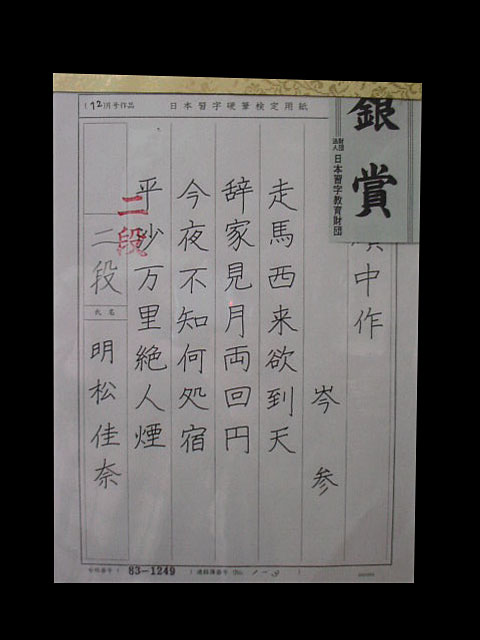 (12)月号作品 日本習字硬筆検定用紙
銀賞
財団法人 日本習字教育財団
中作
岑参
走馬西来欲到天
辞家見月両回円
今夜不知何処宿
平沙万里絶人煙
二段
二段
氏名
明松佳奈
83-1249